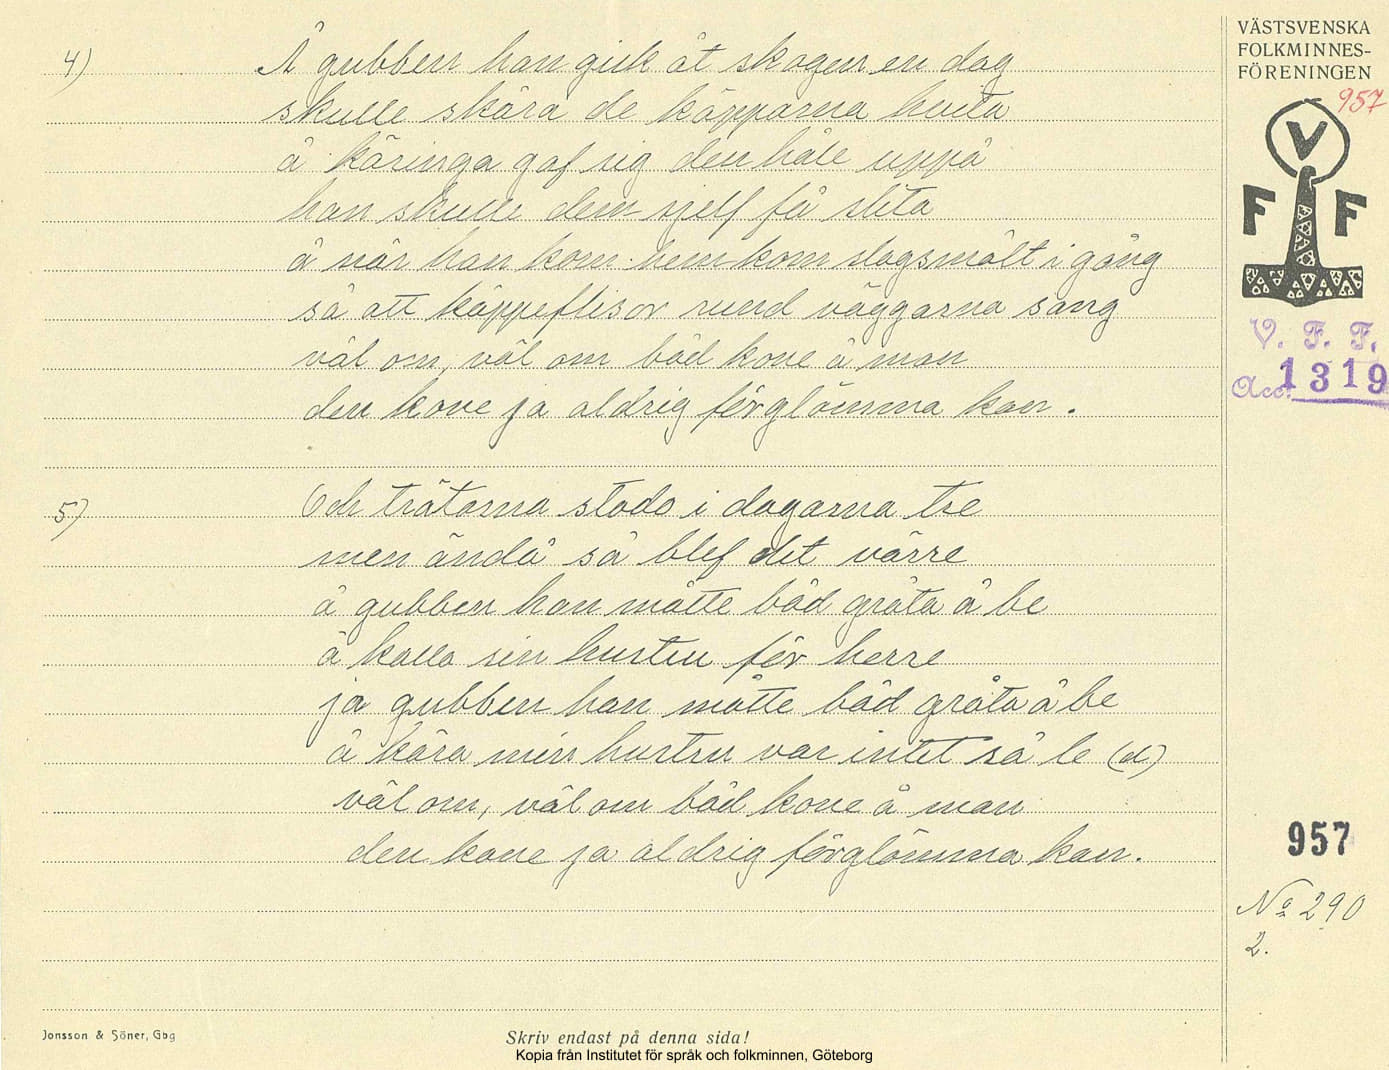 4) Å gubben han gick åt skogen en dag
skulle skära de käpparna hvita
å käringa gaf sig den håle uppå
han skulle dem sjelf få slita
å när han kom hem kom slagsmålt i gång
så att käppeflisor rund väggarna sang
väl om, väl om båd kone å man
den kone ja aldrig förglömma kan.
5) Och trätorna stodo i dagarna tre
men ändå så blef det värre
å gubben han måtte båd gråta å be
å kalla sin hustru för herre
ja gubben han måtte båd gråta å be
å kära min hustru var intet så le (d)
väl om, väl om båd kone å man
den kone ja aldrig förglömma kan.
VÄSTSVENSKA
FOLKMINNES-
FÖRENINGEN
957
V
F F
V. F. F.
Acc. 1319
957
No 290
2.
Jonsson & Söner, Gbg
Skriv endast på denna sida!
Kopia från Institutet för språk och folkminnen, Göteborg